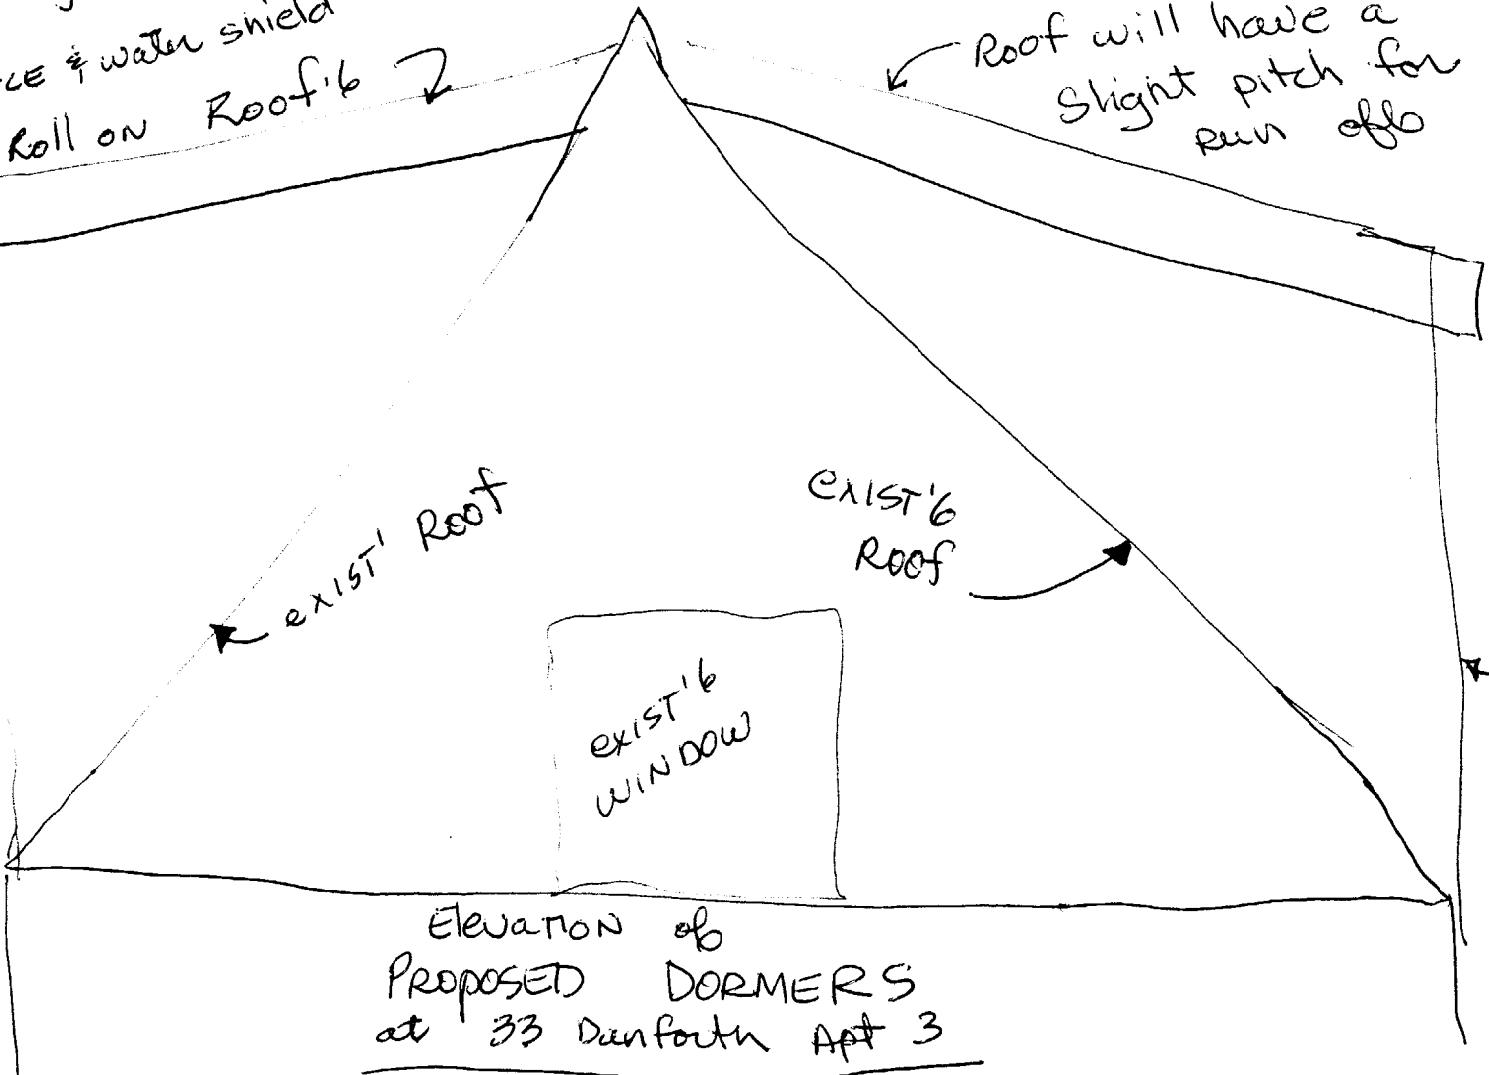 & water shield
Roll on Roof'g
Roof will have a
slight pitch for
run off
exist' Roof
exist'g
Roof
exist'g
WINDOW
Elevation of
PROPOSED DORMERS
at 33 Danforth Apt 3